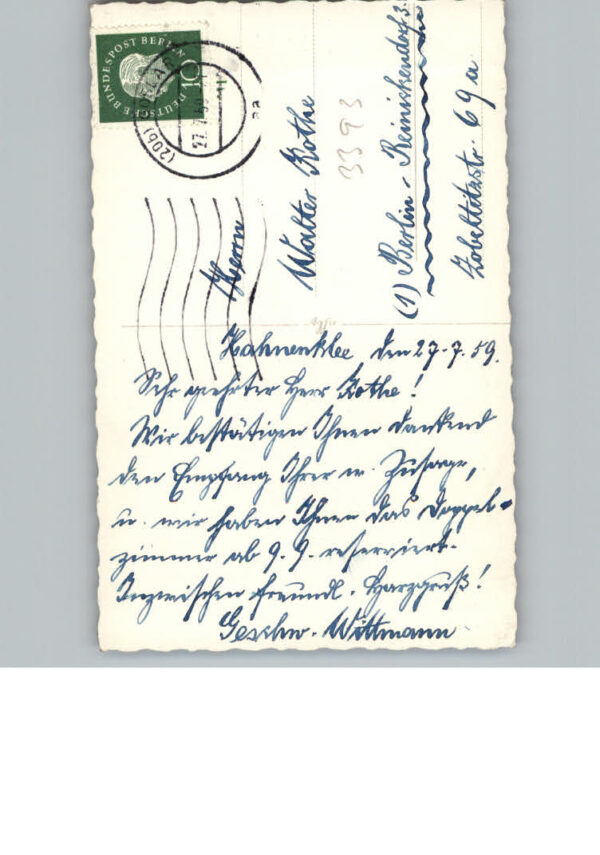 DEUTSCHE BUNDESPOST BERLIN
10
(20b) GOSLAR
27. 7. 59
aa
Herrn
Walter Kothe
3393
(1) Berlin-Reinickendorf 3.
Zobeltitzstr. 69 a
Hahnenklee den 27.7.59.
Sehr geehrter Herr Kothe!
Wir bestätigen Ihnen dankend
den Empfang Ihrer w. Zusage,
u. wir haben Ihnen das Doppel-
zimmer ab 9.9. reserviert.
Inzwischen freundl. Harzgruß!
Geschw. Wittmann